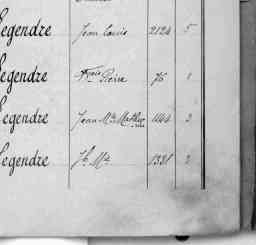 Legendre Jean Louis 2124 5
Legendre Frois Pierre 76 1
Legendre Jean Mie 1144 2
Legendre Jh Mie 1331 2